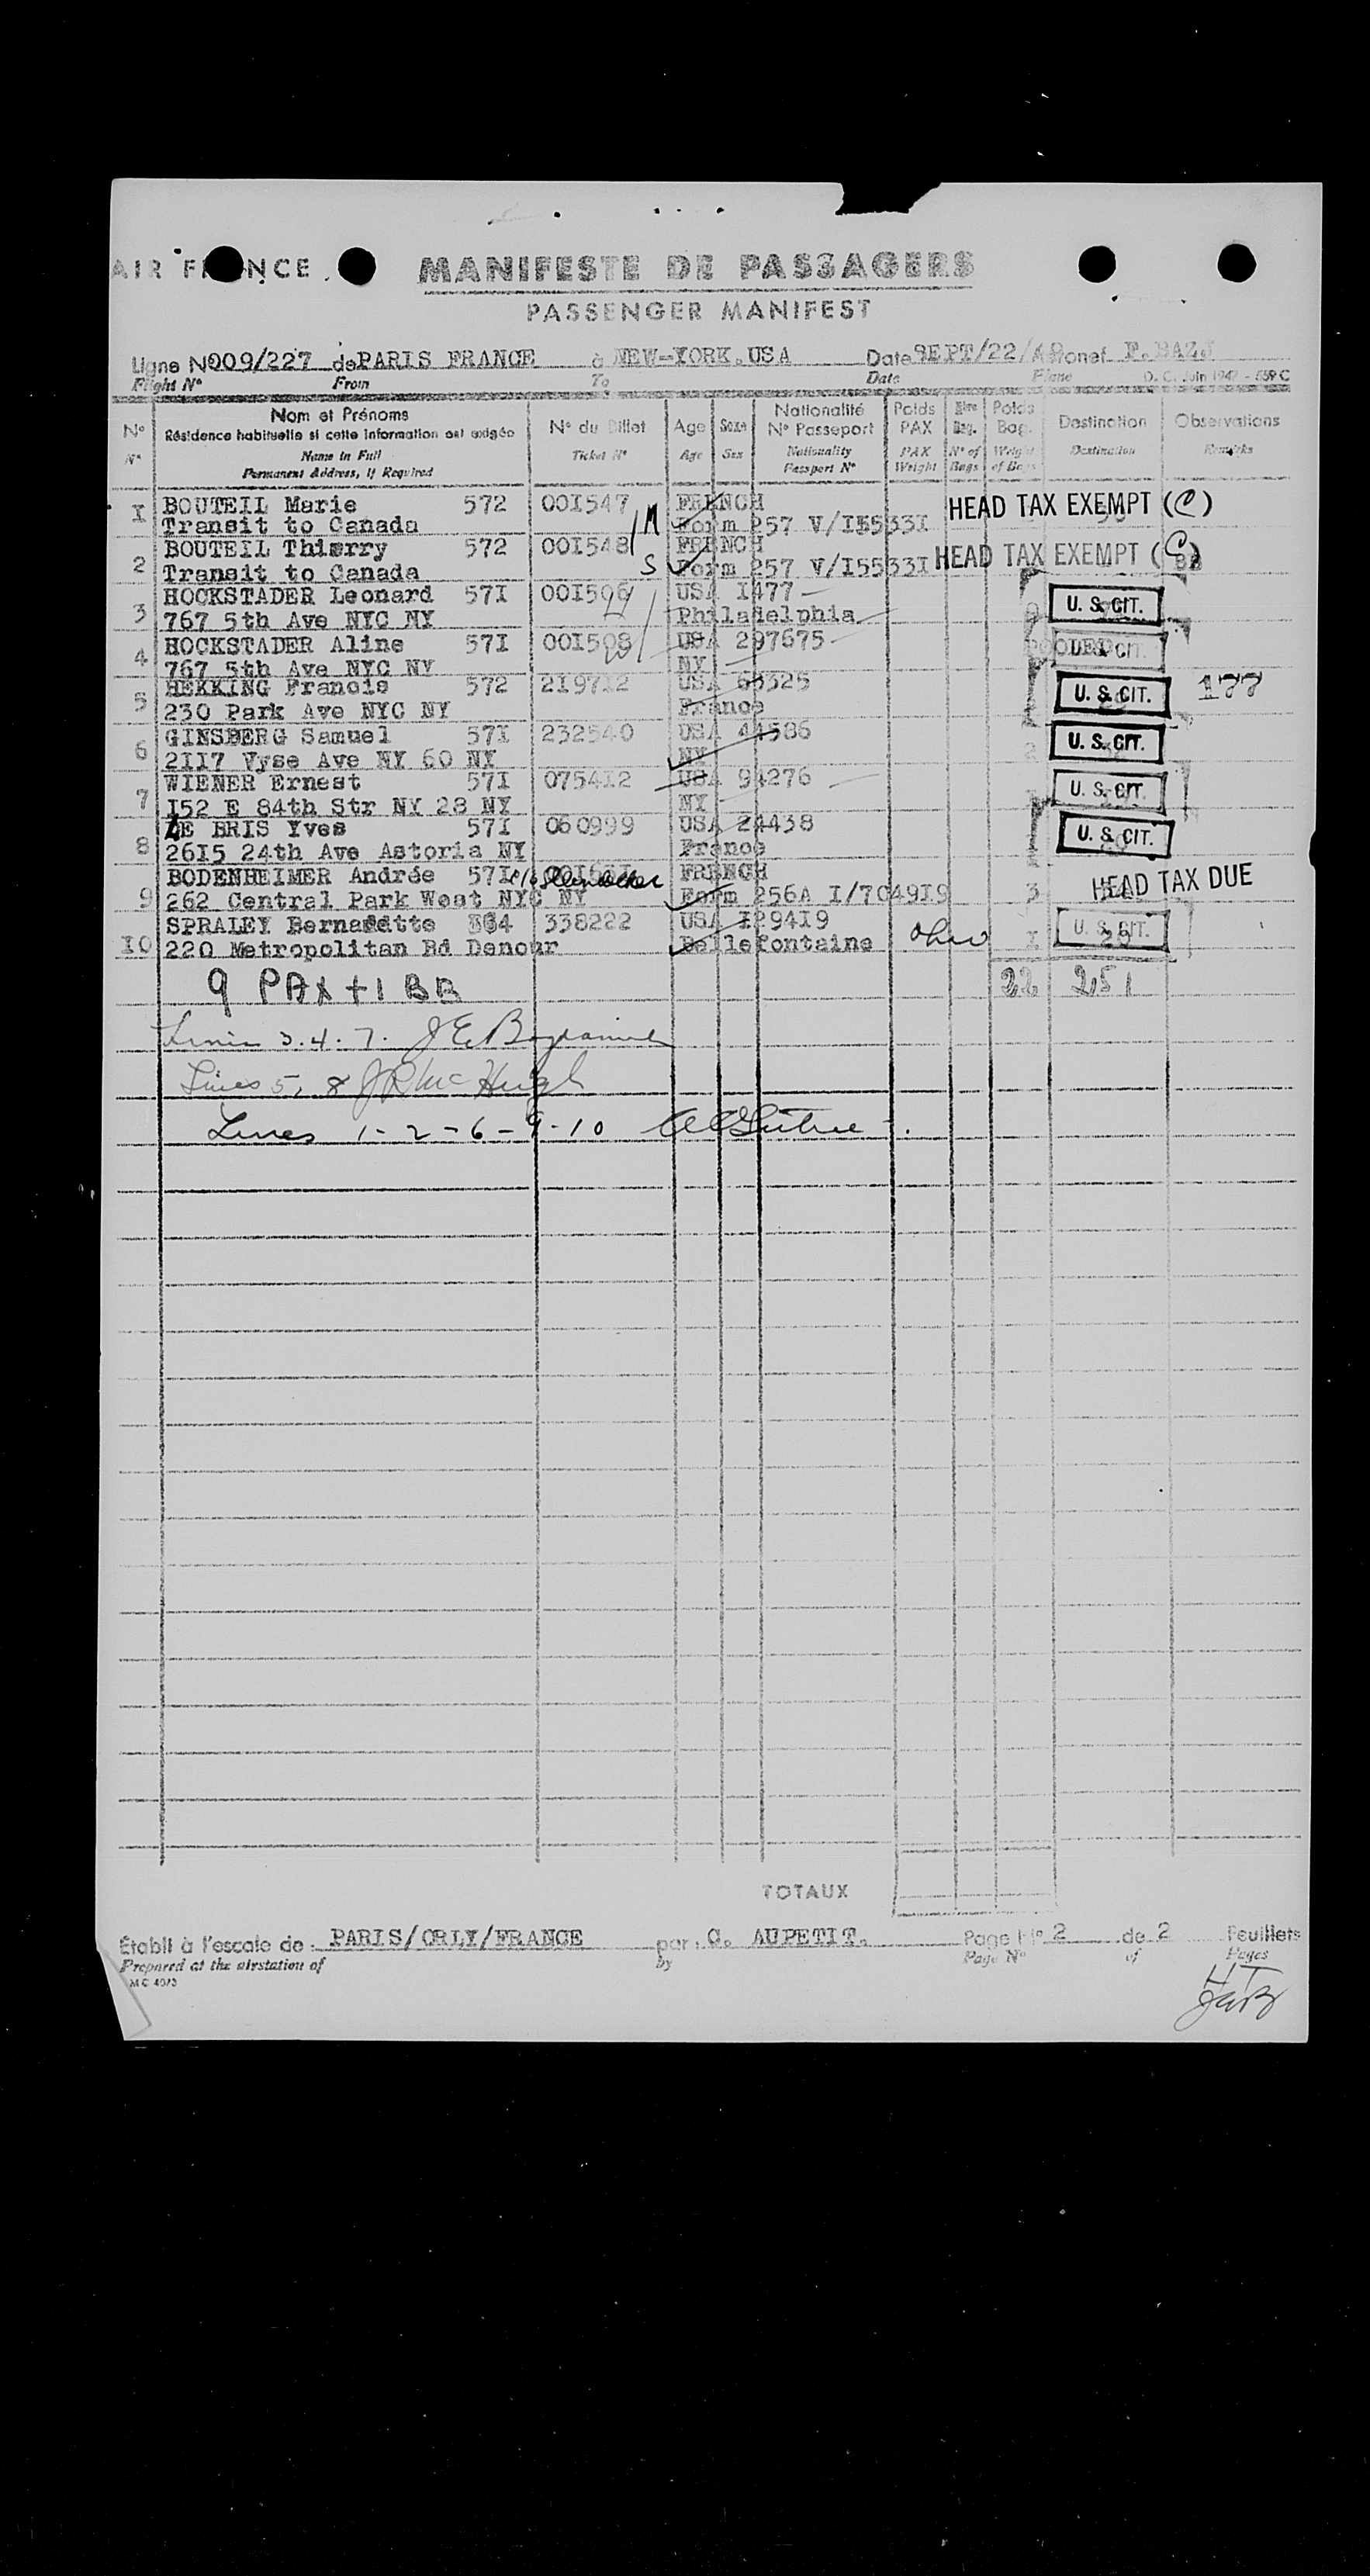 AIR FRANCE
MANIFESTE DE PASSAGERS
PASSENGER MANIFEST
Ligne N° 009/227 de PARIS FRANCE à NEW-YORK.USA Date SEPT/22/
Flight N° From To Date Plane O. C. Juin 1947 - 559 C
N° Nom et Prénoms N° du Billet Age Sexe Nationalité Poids Bag. Poids Destination Observations
Résidence habituelle si cette information est exigée N° Passeport PAX Bag.
N° Name in Full Ticket N° Age Sex Nationality PAX N° of Weight Destination Remarks
Permanent Address, if Required Passport N° Weight Bags of Bags
I BOUTEIL Marie 572 001547 M FRENCH HEAD TAX EXEMPT (C)
Transit to Canada Form 257 V/I5533I
2 BOUTEIL Thierry 572 001548 S FRENCH HEAD TAX EXEMPT (C) BB
Transit to Canada Form 257 V/I5533I
3 HOCKSTADER Leonard 57I 001506 USA I477 U. S. CIT.
767 5th Ave NYC NY Philadelphia
4 HOCKSTADER Aline 57I 001508 USA 297675 U. S. CIT.
767 5th Ave NYC NY NY
5 HEKKING Francis 572 219712 USA 65325 U. S. CIT. 177
230 Park Ave NYC NY France
6 GINSBERG Samuel 57I 232540 USA 44586 U. S. CIT.
2117 Vyse Ave NY 60 NY NY
7 WIENER Ernest 57I 075412 USA 94276 U. S. CIT.
I52 E 84th Str NY 28 NY NY
8 LE BRIS Yves 57I 060999 USA 24438 U. S. CIT.
26I5 24th Ave Astoria NY France
9 BODENHEIMER Andrée 57I c/o FRENCH HEAD TAX DUE
262 Central Park West NYC NY Form 256A I/7049I9 3
I0 SPRALEY Bernadette 338222 USA I294I9 U. S. CIT.
220 Metropolitan Rd Denour Bellefontaine Ohio I
9 PAX + 1 BB 22 251
Lines 3. 4. 7.
Lines 5, 8 J R McHugh
Lines 1-2-6-9-10
TOTAUX
Établi à l'escale de : PARIS/ORLY/FRANCE par : C. AUPETIT. Page N° 2 de 2 Feuillets
Prepared at the airstation of by Page N° of Pages
HT